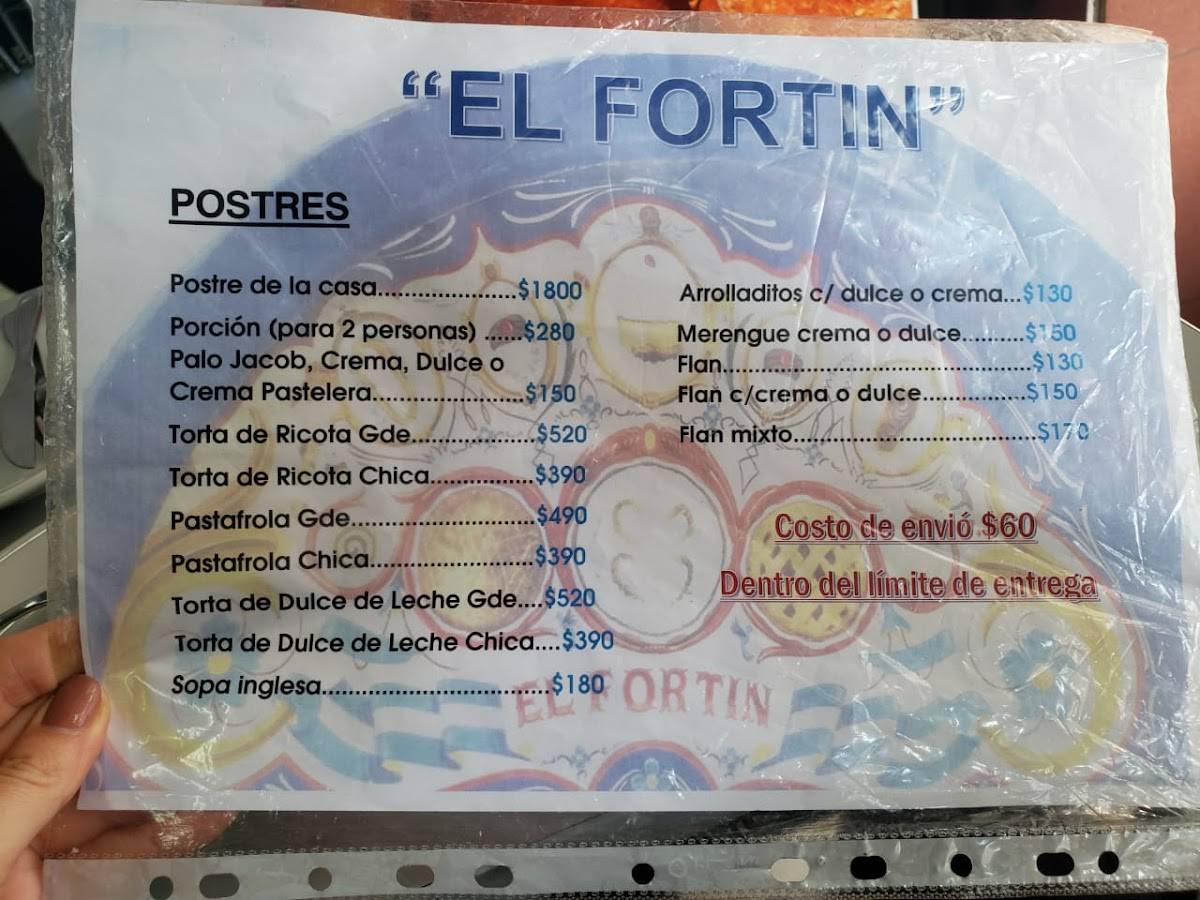 “EL FORTIN”
POSTRES
Postre de la casa.....................$1800
Porción (para 2 personas) ......$280
Palo Jacob, Crema, Dulce o
Crema Pastelera.......................$150
Torta de Ricota Gde...................$520
Torta de Ricota Chica................$390
Pastafrola Gde............................$490
Pastafrola Chica.........................$390
Torta de Dulce de Leche Gde....$520
Torta de Dulce de Leche Chica....$390
Sopa inglesa...................................$180
Arrolladitos c/ dulce o crema...$130
Merengue crema o dulce..........$150
Flan...............................................$130
Flan c/crema o dulce................$150
Flan mixto.....................................$170
Costo de envió $60
Dentro del límite de entrega
EL FORTIN